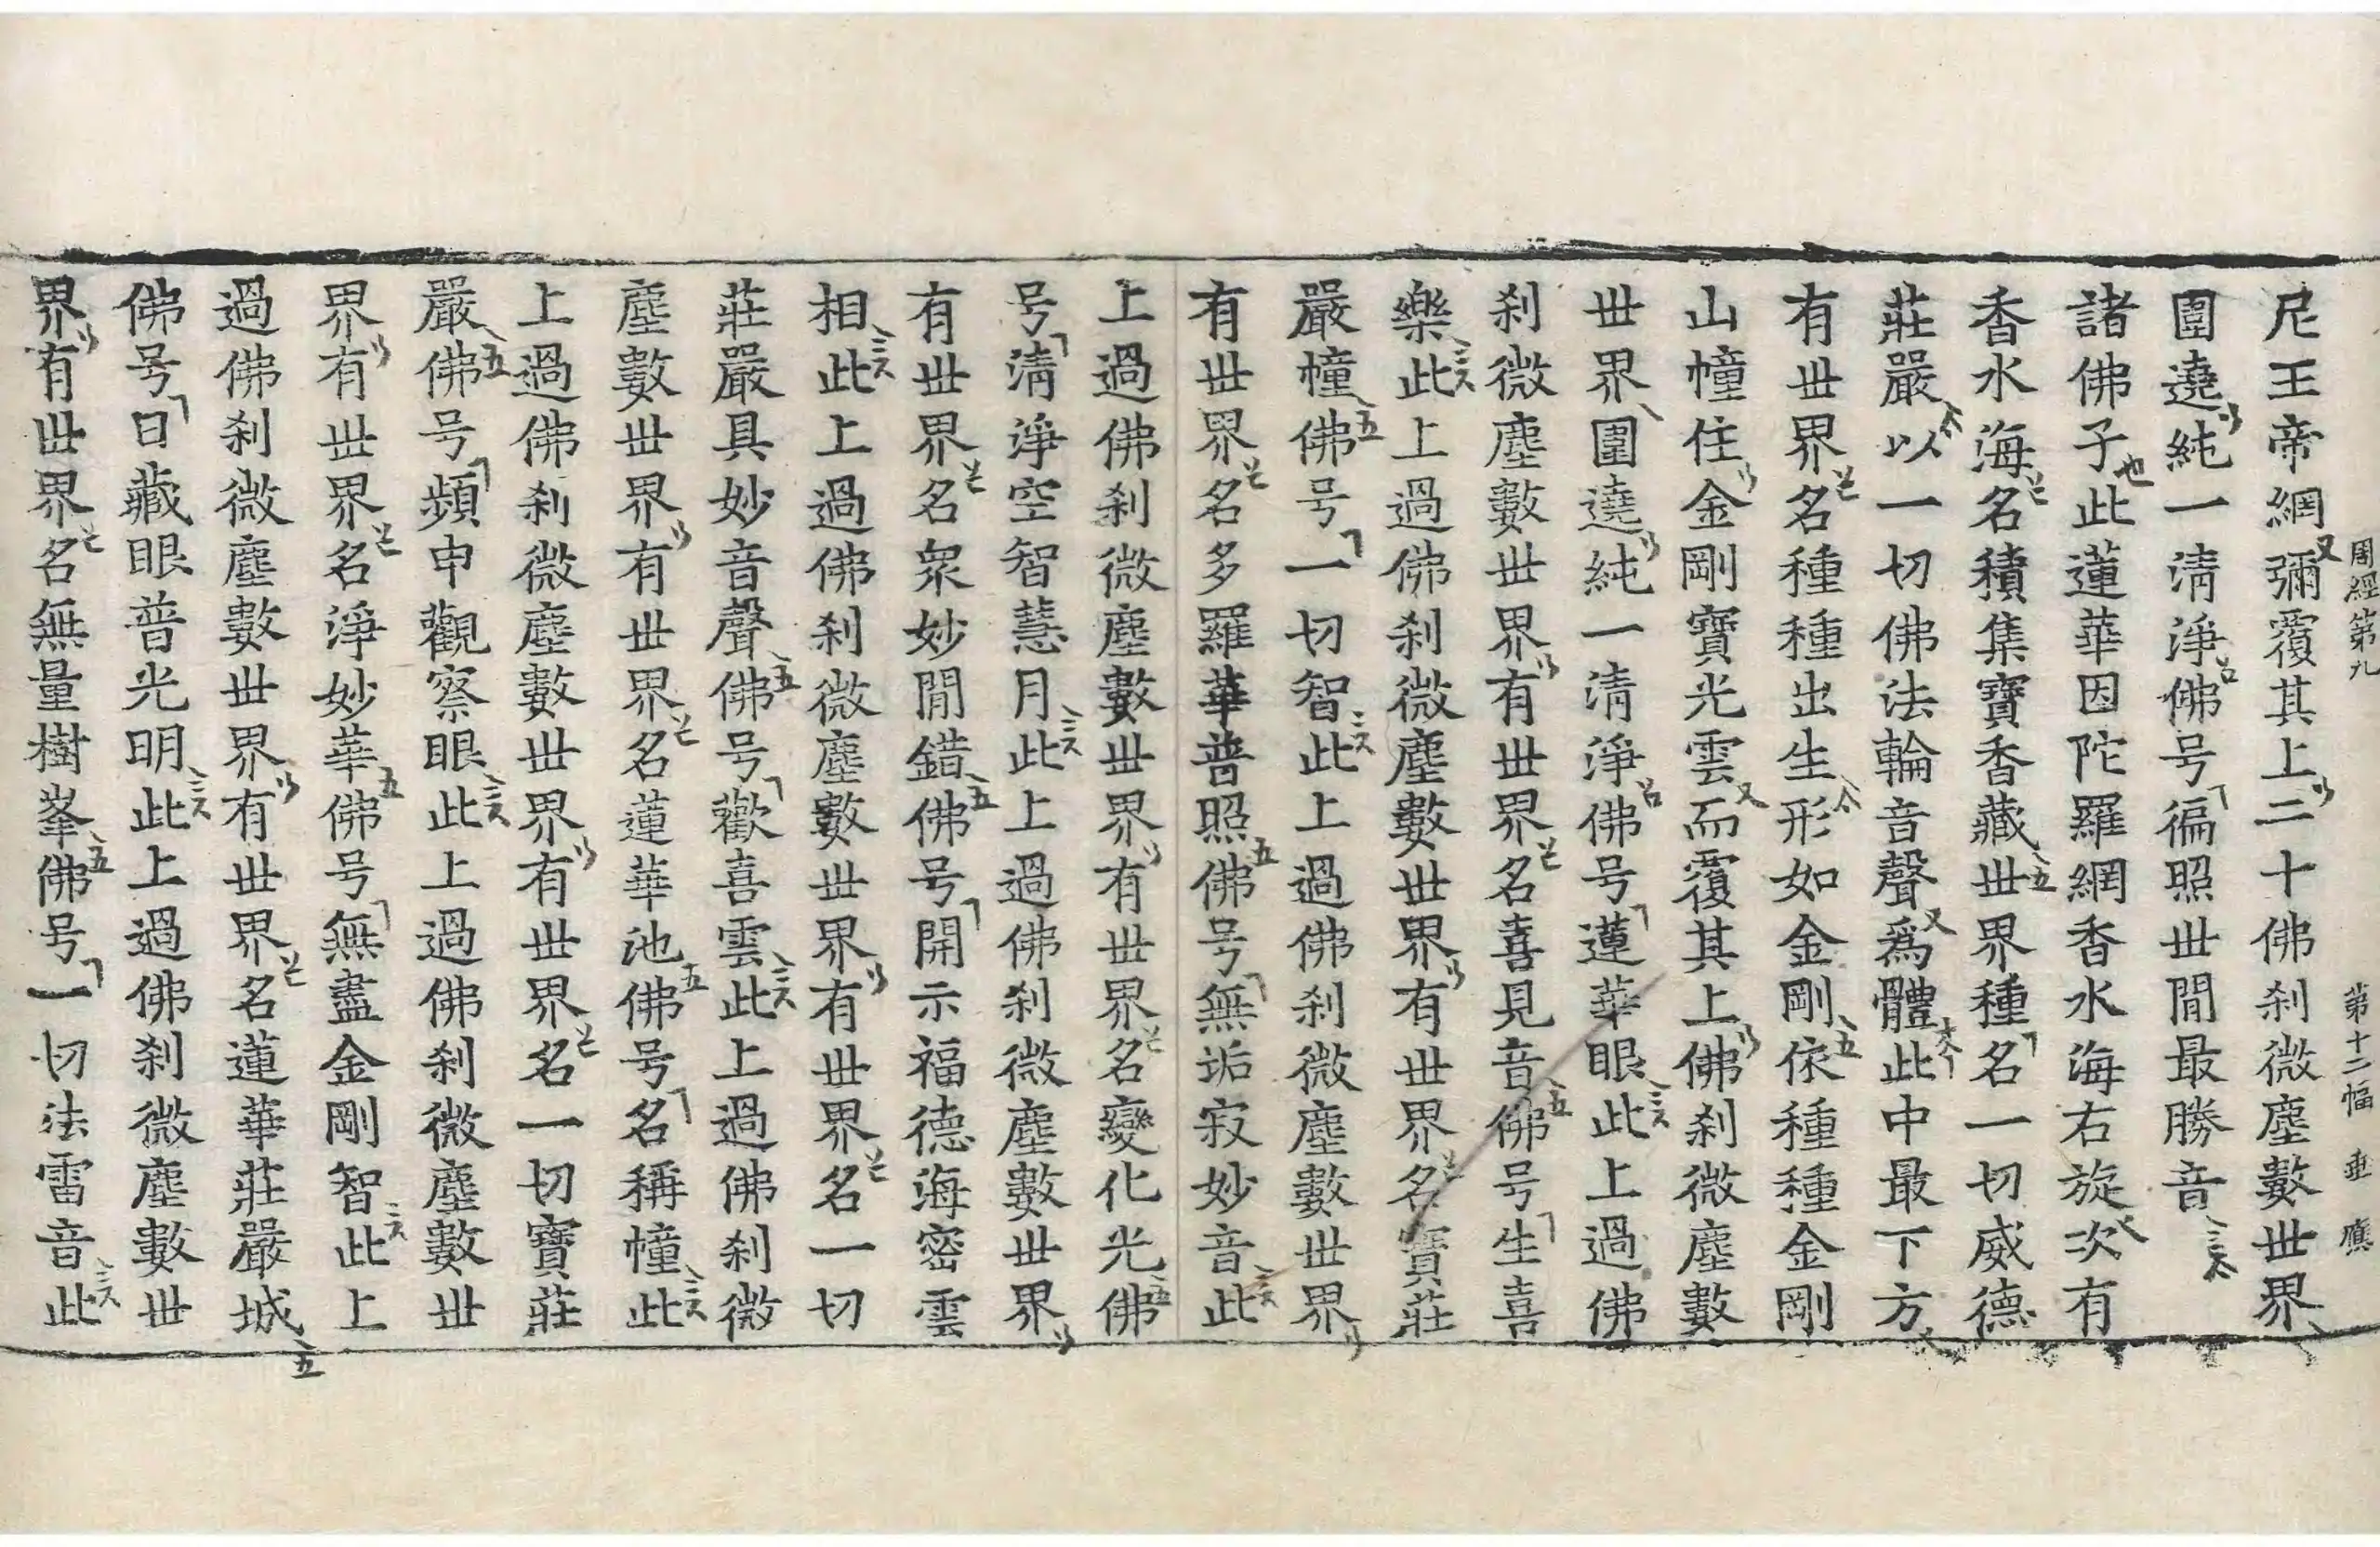 周經第九 第十二幅 垂 𢊍
尼王帝網彌覆其上二十佛刹微塵數世界
圍遶純一清淨佛号徧照世閒最勝音
諸佛子此蓮華因陀羅網香水海右旋次有
香水海名積集寶香藏世界種名一切威德
莊嚴以一切佛法輪音聲爲體此中最下方
有世界名種種出生形如金剛依種種金剛
山幢住金剛寶光雲而覆其上佛刹微塵數
世界圍遶純一清淨佛号蓮華眼此上過佛
刹微塵數世界有世界名喜見音佛号生喜
樂此上過佛刹微塵數世界有世界名寶莊
嚴幢佛号一切智此上過佛刹微塵數世界
有世界名多羅華普照佛号無垢寂妙音此
上過佛刹微塵數世界有世界名變化光佛
号清淨空智慧月此上過佛刹微塵數世界
有世界名衆妙閒錯佛号開示福德海密雲
相此上過佛刹微塵數世界有世界名一切
莊嚴具妙音聲佛号歡喜雲此上過佛刹微
塵數世界有世界名蓮華池佛号名稱幢此
上過佛刹微塵數世界有世界名一切寶莊
嚴佛号頻申觀察眼此上過佛刹微塵數世
界有世界名淨妙華佛号無盡金剛智此上
過佛刹微塵數世界有世界名蓮華莊嚴城
佛号日藏眼普光明此上過佛刹微塵數世
界有世界名無量樹峯佛号一切法雷音此